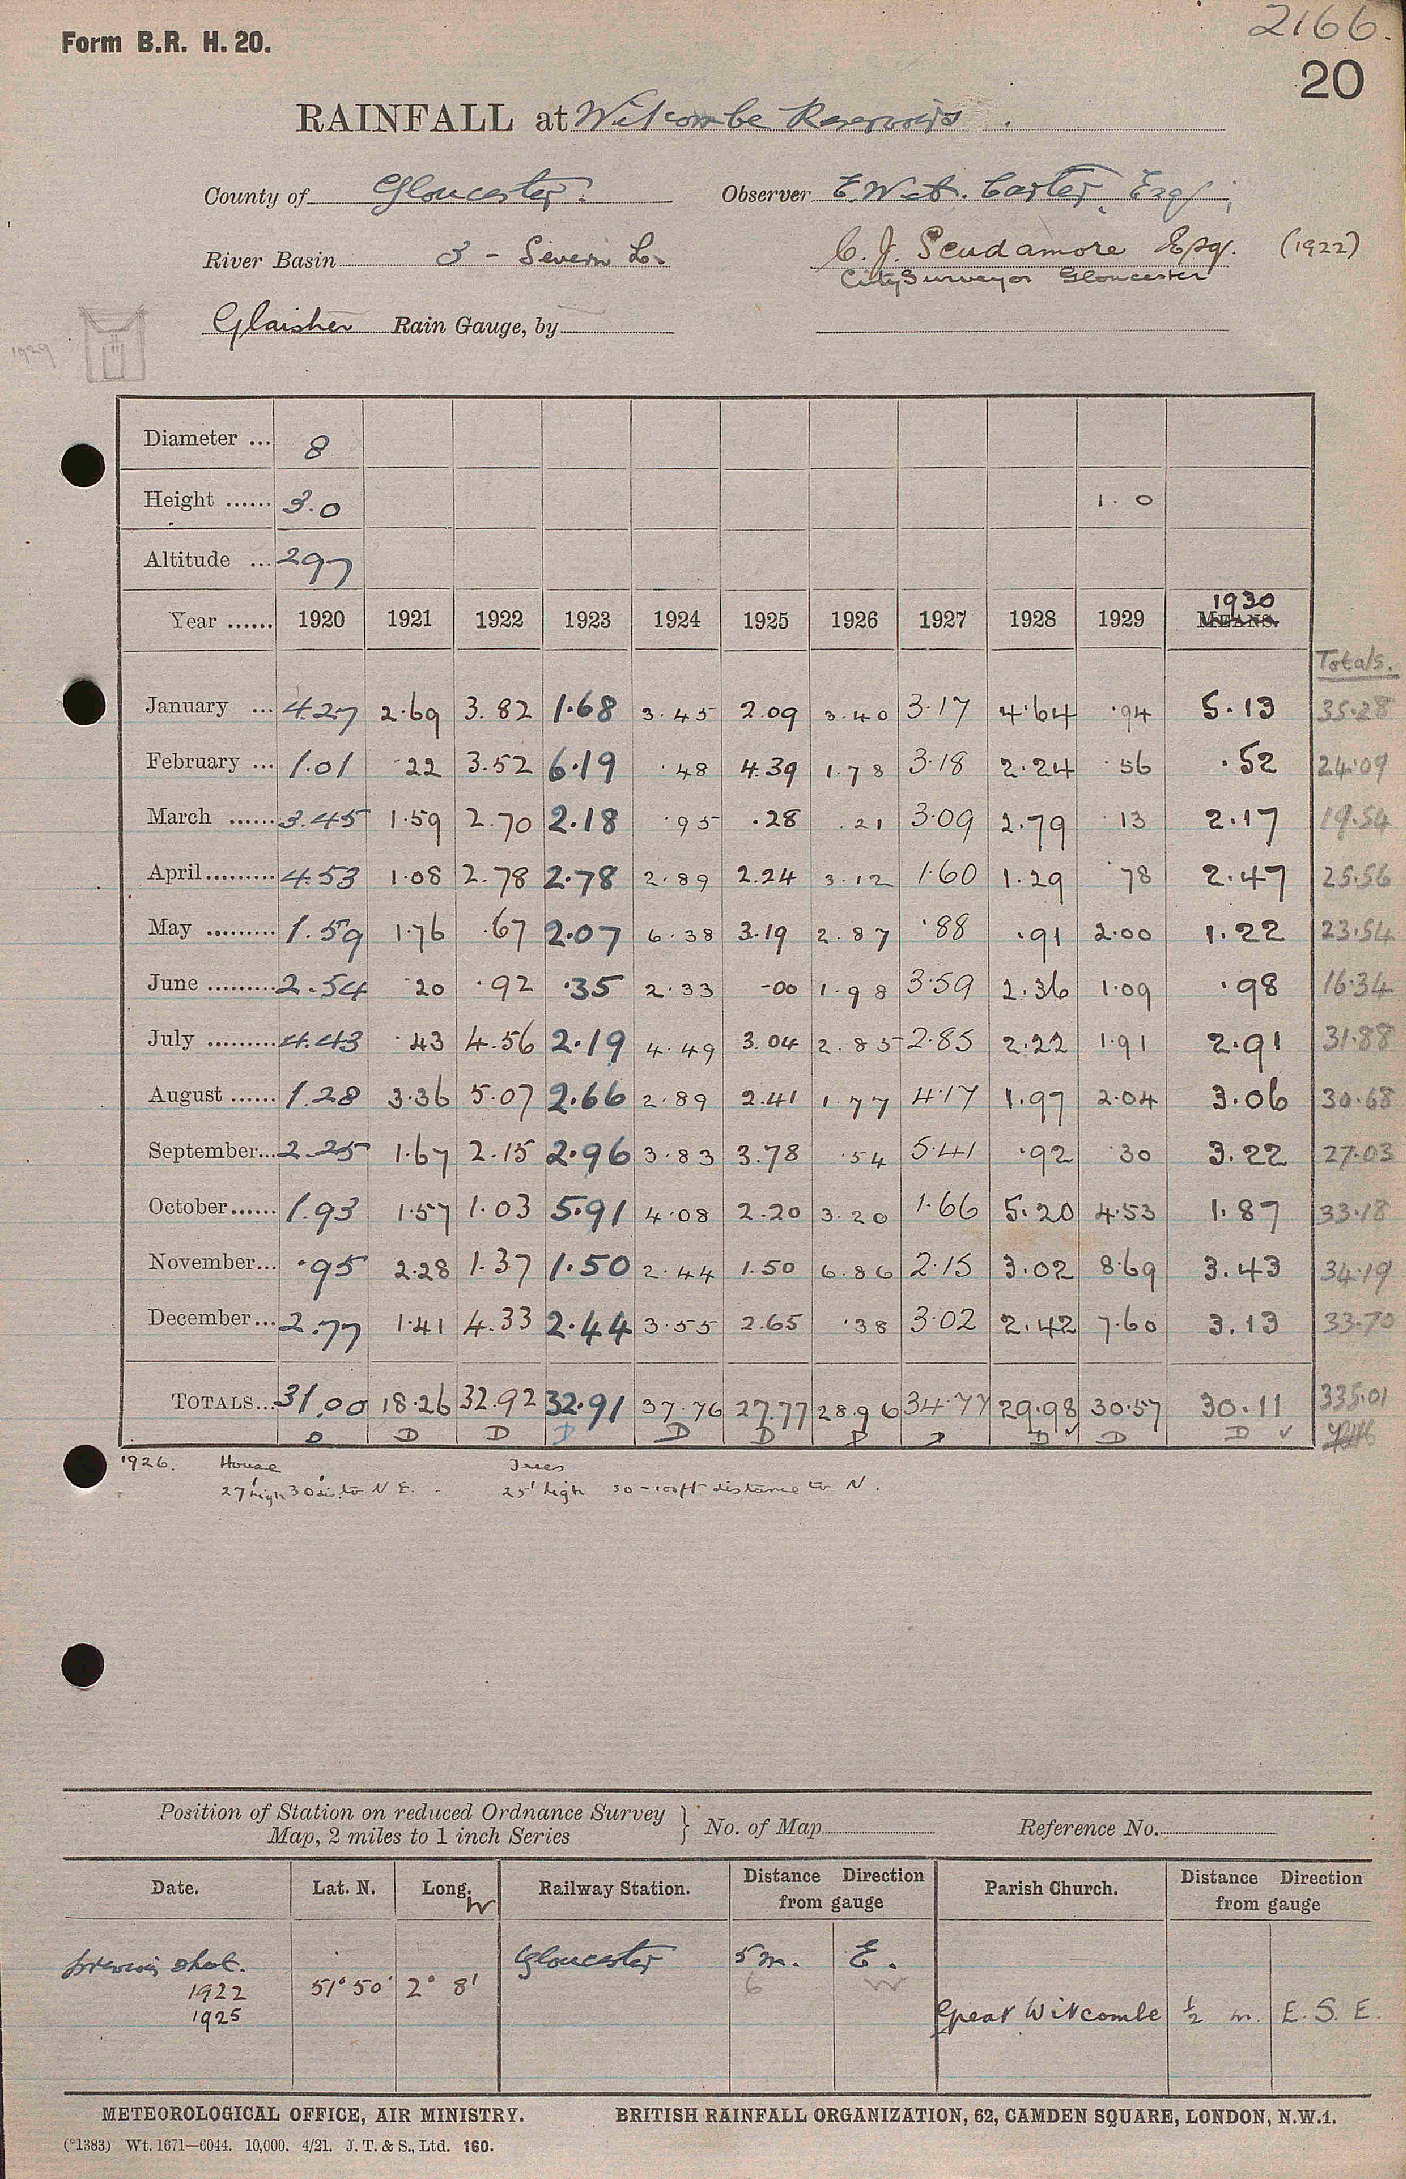 2166.
Form B.R. H. 20.
20
RAINFALL at Witcombe Reservoirs.
County of Gloucester. Observer E. W. A. Carter, Esq.,
River Basin 3 - Severn L. C. J. Scudamore Esq. (1922)
City Surveyor Gloucester
Glaisher Rain Gauge, by
1929
Diameter ... 8
Height ...... 3.0 1.0
Altitude ... 297
1930
Year ...... 1920 1921 1922 1923 1924 1925 1926 1927 1928 1929 MEANS.
Totals.
January ... 4.27 2.69 3.82 1.68 3.45 2.09 3.40 3.17 4.64 .94 5.13 35.28
February ... 1.01 .22 3.52 6.19 .48 4.39 1.78 3.18 2.24 .56 .52 24.09
March ...... 3.45 1.59 2.70 2.18 .95 .28 .21 3.09 2.79 .13 2.17 19.54
April......... 4.53 1.08 2.78 2.78 2.89 2.24 3.12 1.60 1.29 .78 2.47 25.56
May ......... 1.59 1.76 .67 2.07 6.38 3.19 2.87 .88 .91 2.00 1.22 23.54
June ......... 2.54 .20 .92 .35 2.33 -00 1.98 3.59 2.36 1.09 .98 16.34
July ......... 4.43 .43 4.56 2.19 4.49 3.04 2.85 2.85 2.22 1.91 2.91 31.88
August ...... 1.28 3.36 5.07 2.66 2.89 2.41 1.77 4.17 1.97 2.04 3.06 30.68
September... 2.25 1.67 2.15 2.96 3.83 3.78 .54 5.41 .92 .30 3.22 27.03
October...... 1.93 1.57 1.03 5.91 4.08 2.20 3.20 1.66 5.20 4.53 1.87 33.18
November... .95 2.28 1.37 1.50 2.44 1.50 6.86 2.15 3.02 8.69 3.43 34.19
December... 2.77 1.41 4.33 2.44 3.55 2.65 .38 3.02 2.42 7.60 3.13 33.70
TOTALS... 31.00 18.26 32.92 32.91 37.76 27.77 28.96 34.77 29.98 30.57 30.11 335.01
D D D D D D D D D ✓ D D ✓
1926. House Trees
27' high 30 dis. to N E. 25' high 30-100ft distance to N.
Position of Station on reduced Ordnance Survey
Map, 2 miles to 1 inch Series } No. of Map Reference No.
Date. Lat. N. Long. W Railway Station. Distance Direction from gauge Parish Church. Distance Direction from gauge
previous sheet. Gloucester 5 m. E.
1922 51° 50' 2° 8' 6 W
1925 Great Witcombe ½ m. E. S. E.
METEOROLOGICAL OFFICE, AIR MINISTRY. BRITISH RAINFALL ORGANIZATION, 62, CAMDEN SQUARE, LONDON, N.W.1.
(°1383) Wt. 1671—6044. 10,000. 4/21. J. T. & S., Ltd. 160.